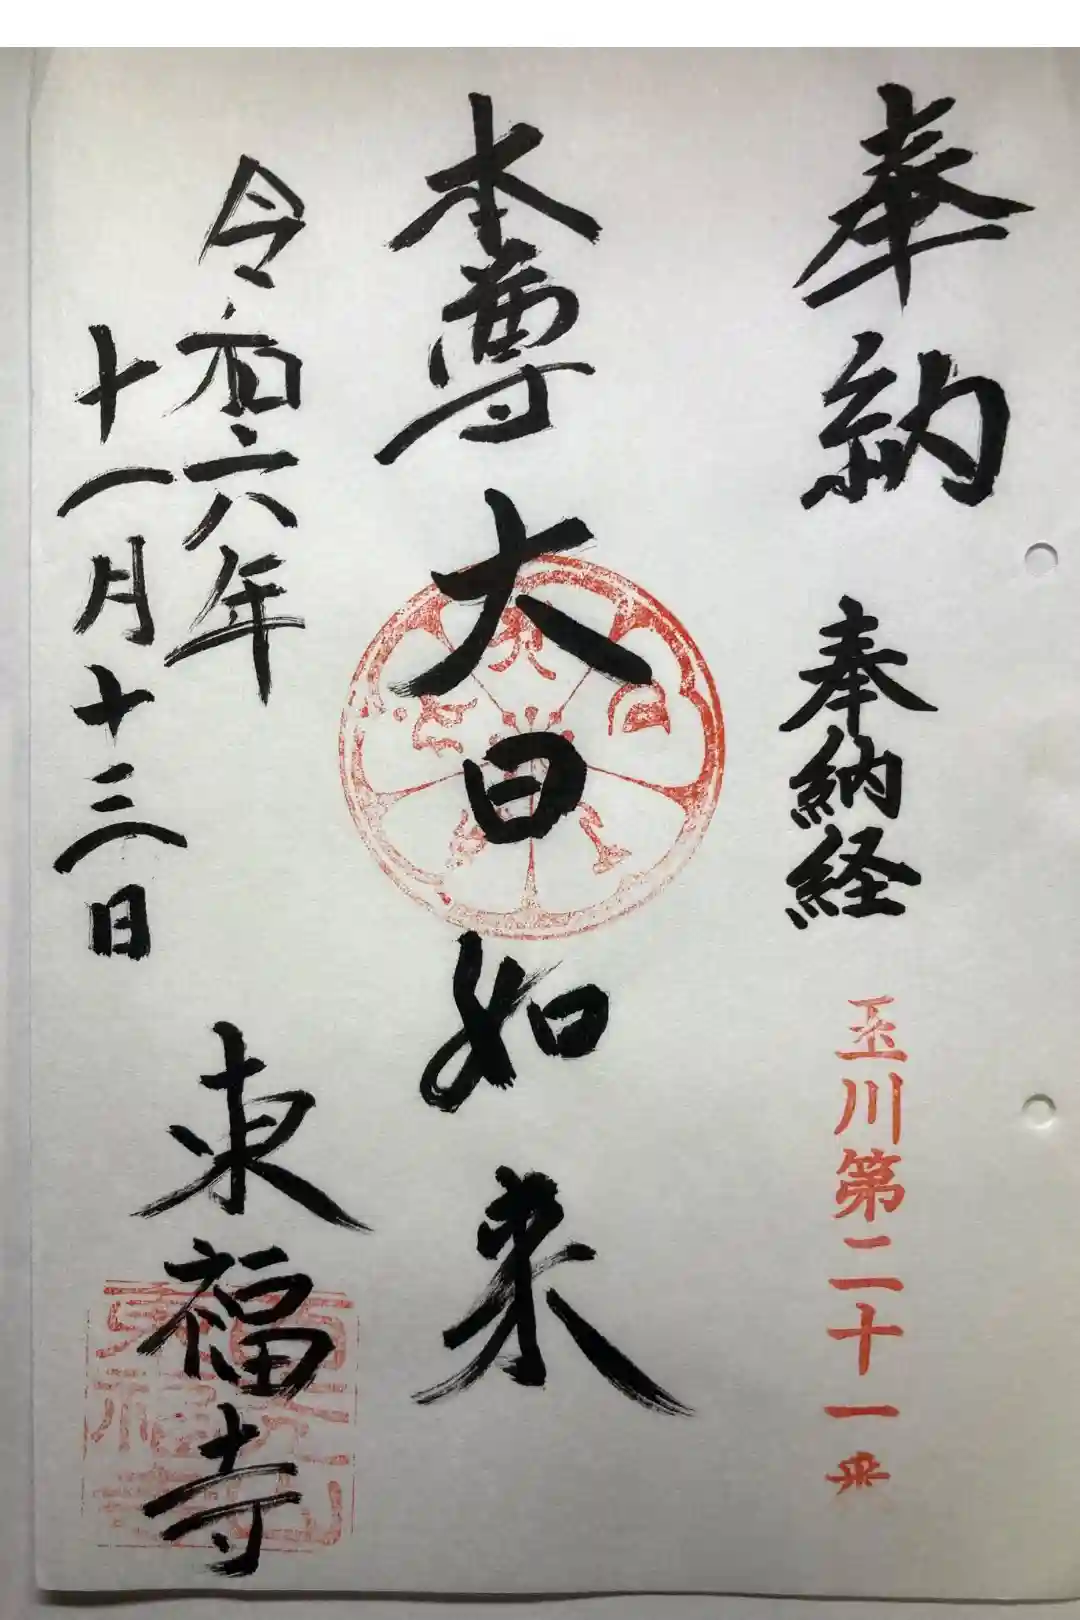 奉納
奉納経
玉川第二十一番
本尊
大日如来
令和六年
十一月十三日
東福寺